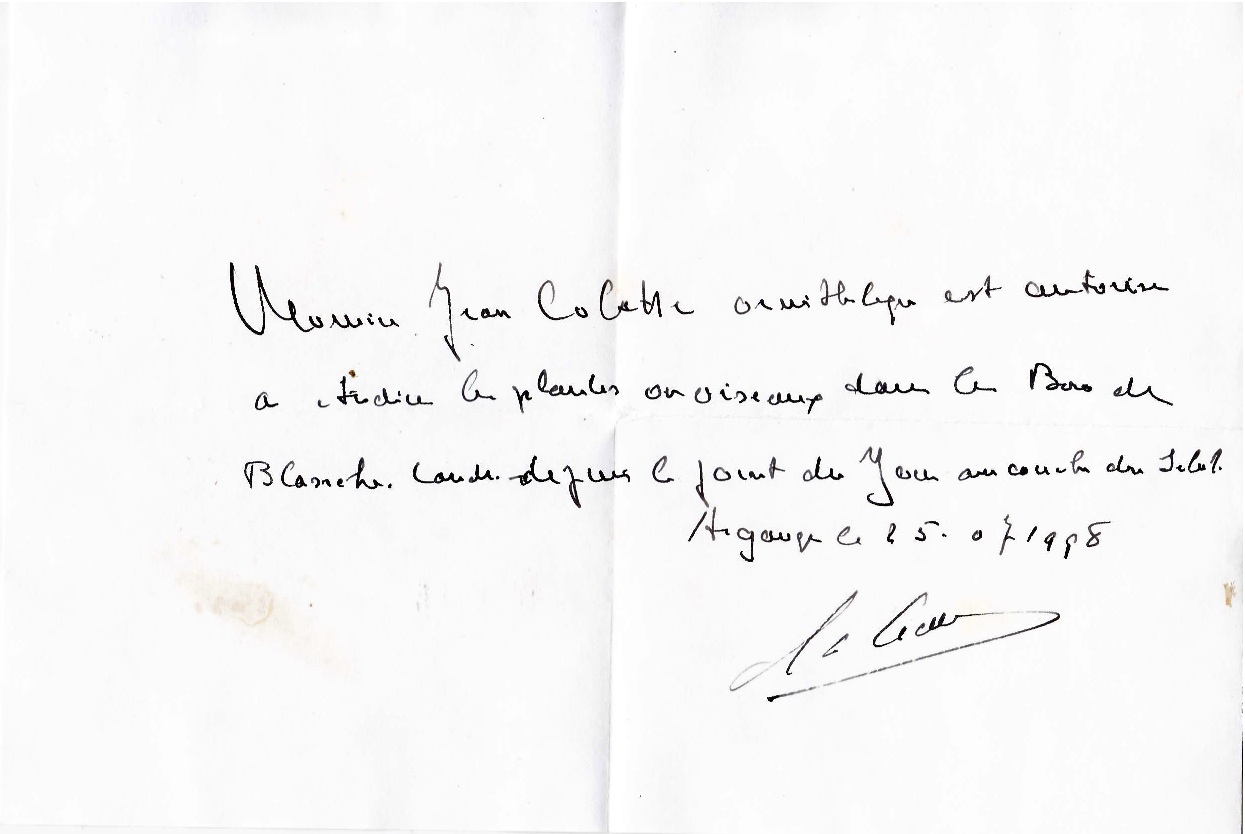 Monsieur Jean Colette ornithologue est autorisé
a étudier les plantes ou oiseaux dans le Bois de
Blanche Lande depuis le point du Jour au couché du Soleil.
le 25.07 1998